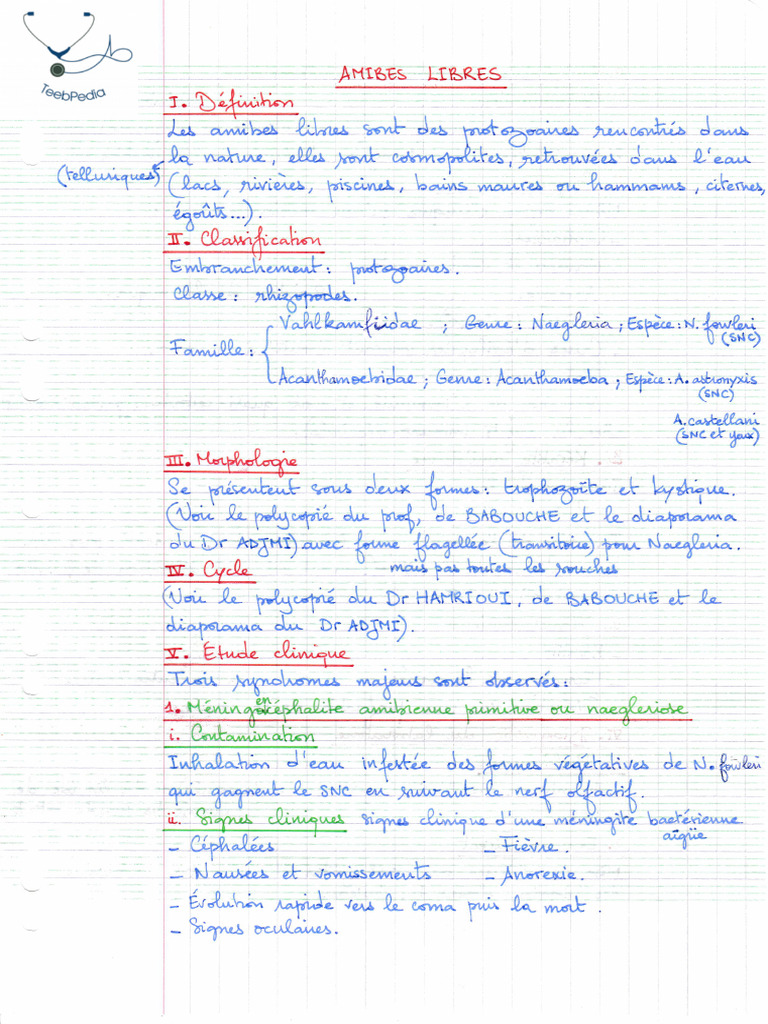 TeebPedia
AMIBES LIBRES
I. Définition
Les amibes libres sont des protozoaires rencontrés dans
la nature, elles sont cosmopolites, retrouvées dans l'eau
(telluriques)
(lacs, rivières, piscines, bains maures ou hammams, citernes,
égoûts...).
II. Classification
Embranchement : protozoaires.
Classe : rhizopodes.
Famille :
Vahlkamfiidae ; Genre : Naegleria ; Espèce : N. fowleri
(SNC)
Acanthamoebidae ; Genre : Acanthamoeba ; Espèce : A. astronyxis
(SNC)
A. castellani
(SNC et yeux)
III. Morphologie
Se présentent sous deux formes : trophozoïte et kystique.
(Voir le polycopié du prof, de BABOUCHE et le diaporama
du Dr ADJMI) avec forme flagellée (transitoire) pour Naegleria.
mais pas toutes les souches
IV. Cycle
(Voir le polycopié du Dr HAMRIOUI, de BABOUCHE et le
diaporama du Dr ADJMI).
V. Étude clinique
Trois syndromes majeurs sont observés :
1. Méningoencéphalite amibienne primitive ou naegleriose
i. Contamination
Inhalation d'eau infestée des formes végétatives de N. fowleri
qui gagnent le SNC en suivant le nerf olfactif.
ii. Signes cliniques signes clinique d'une méningite bactérienne
aigüe
- Céphalées - Fièvre.
- Nausées et vomissements - Anorexie.
- Évolution rapide vers le coma puis la mort.
- Signes oculaires.